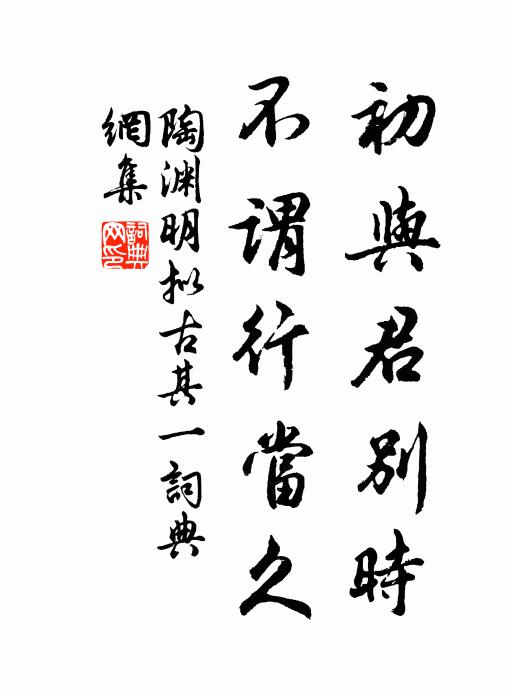 初與君别時
不謂行當久
陶渊明拟古其一詞典
網集
詞典
网印